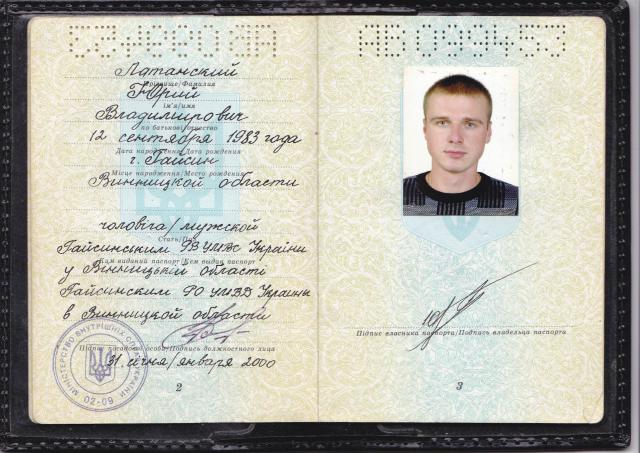 Юрий
Прізвище/Фамилия
ім'я/имя
Владимирович
по батькові/отчество
12 сентября 1983 года
Дата народження/Дата рождения
г. Гайсин
Місце народження/Место рождения
Винницкой области
чоловіча/мужской
Стать/Пол
Гайсинським РВ УМВС України
Ким виданий паспорт/Кем выдан паспорт
у Вінницькій області
Гайсинским РО УМВД Украины
в Винницкой области
Підпис посадової особи/Подпись должностного лица
31 січня/января 2000
МІНІСТЕРСТВО ВНУТРІШНІХ СПРАВ УКРАЇНИ
02-09
2
АВ 099453
Підпис власника паспорта/Подпись владельца паспорта
3